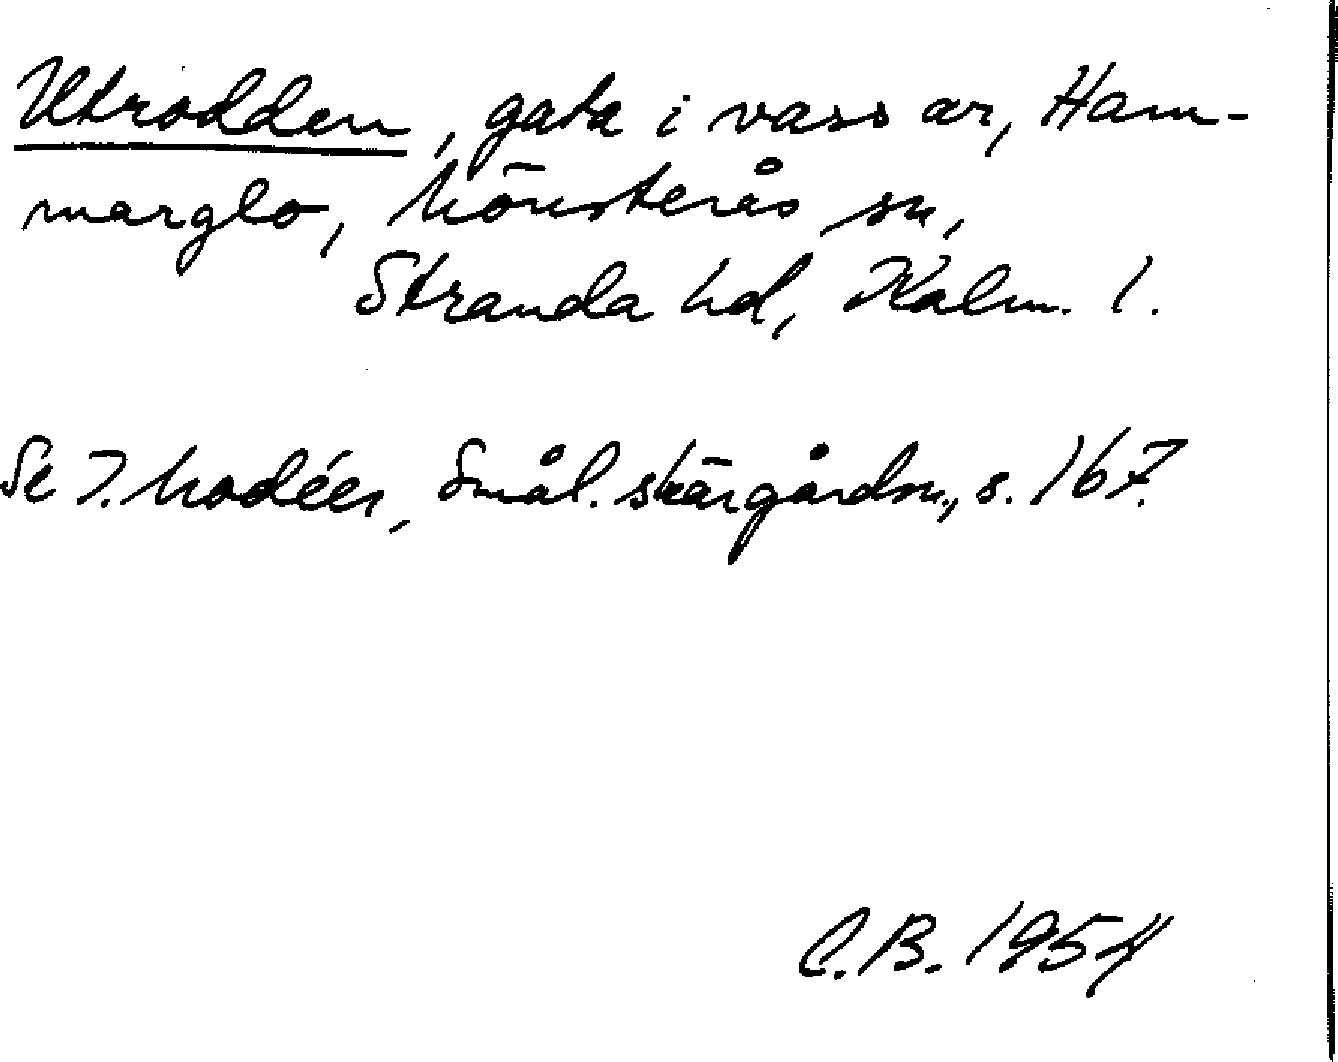 Utrodden, gata i vassar, Ham-
marglo, Mönsterås sn,
Stranda hd, Kalm. l.
Se I. Modéer, Smål. skärgårdsn., s. 167.
C.B. 1954